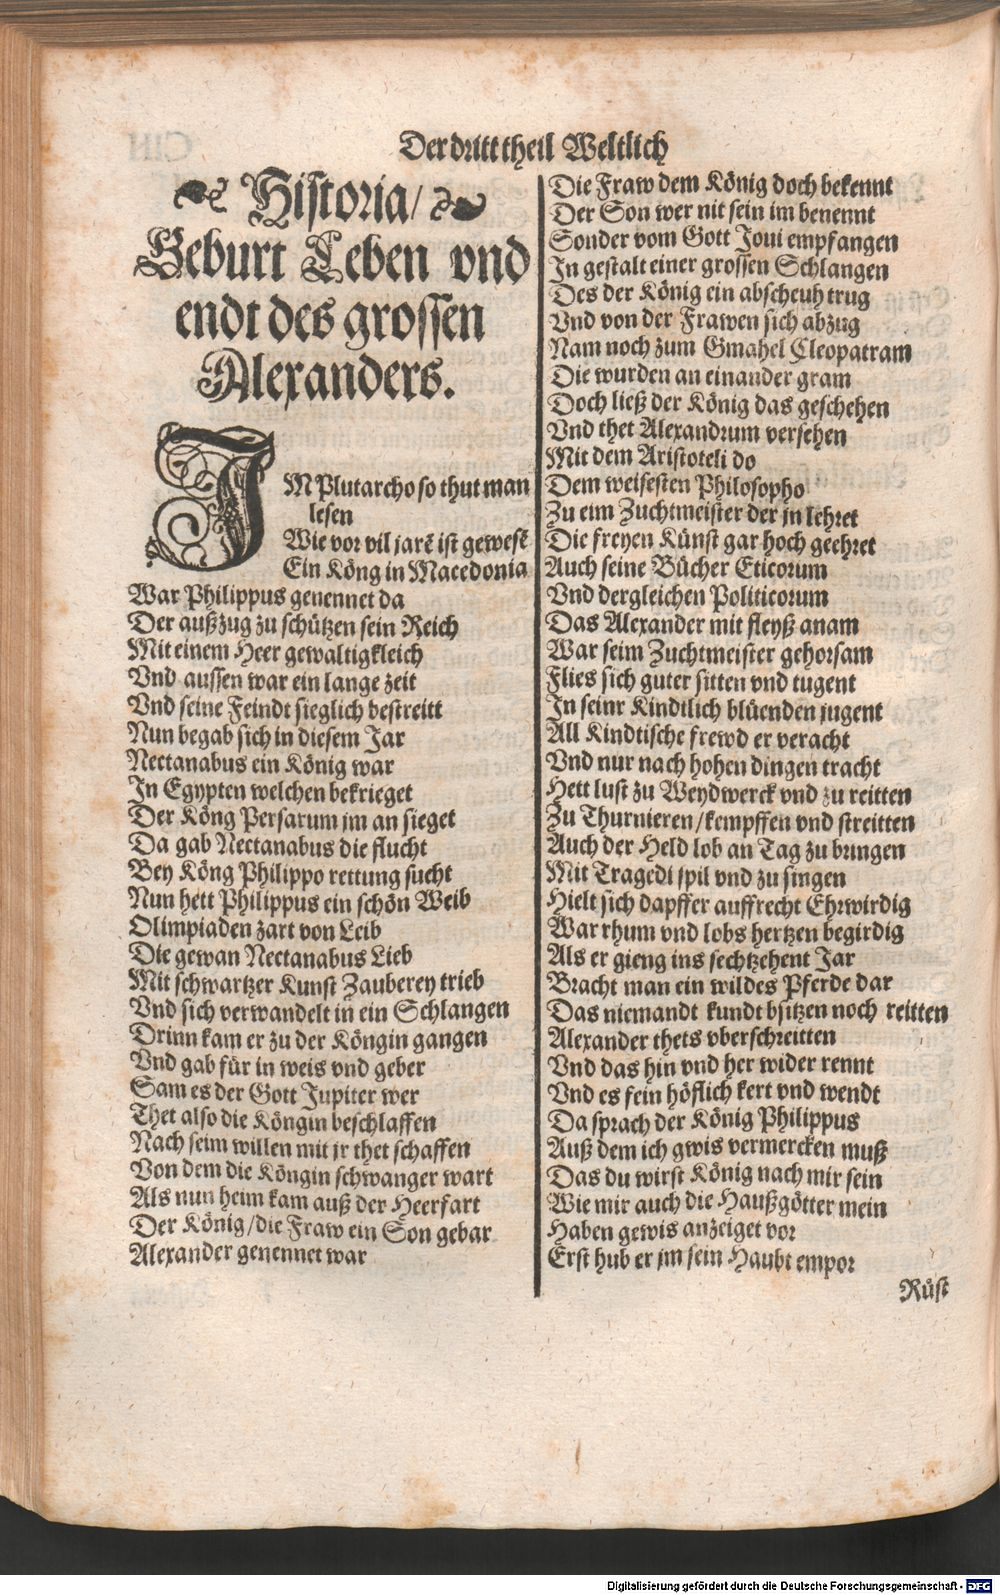 Der dritt theil Weltlich
Historia/
Geburt Leben vnd
endt des grossen
Alexanders.
IM Plutarcho so thut man
lesen
Wie vor vil jarē ist gewesē
Ein Köng in Macedonia
War Philippus genennet da
Der außzug zu schützen sein Reich
Mit einem Heer gewaltigkleich
Vnd aussen war ein lange zeit
Vnd seine Feindt sieglich bestreitt
Nun begab sich in diesem Jar
Nectanabus ein König war
In Egypten welchen bekrieget
Der Köng Persarum jm an sieget
Da gab Nectanabus die flucht
Bey Köng Philippo rettung sucht
Nun hett Philippus ein schön Weib
Olimpiaden zart von Leib
Die gewan Nectanabus Lieb
Mit schwartzer Kunst Zauberey trieb
Vnd sich verwandelt in ein Schlangen
Drinn kam er zu der Köngin gangen
Vnd gab für in weis vnd geber
Sam es der Gott Jupiter wer
Thet also die Köngin beschlaffen
Nach seim willen mit jr thet schaffen
Von dem die Köngin schwanger wart
Als nun heim kam auß der Heerfart
Der König/die Fraw ein Son gebar
Alexander genennet war
Die Fraw dem König doch bekennt
Der Son wer nit sein im benennt
Sonder vom Gott Joui empfangen
In gestalt einer grossen Schlangen
Des der König ein abscheuh trug
Vnd von der Frawen sich abzug
Nam noch zum Gmahel Cleopatram
Die wurden an einander gram
Doch ließ der König das geschehen
Vnd thet Alexandrum versehen
Mit dem Aristoteli do
Dem weisesten Philosopho
Zu eim Zuchtmeister der jn lehret
Die freyen Künst gar hoch geehret
Auch seine Bücher Eticorum
Vnd dergleichen Politicorum
Das Alexander mit fleyß anam
War seim Zuchtmeister gehorsam
Flies sich guter sitten vnd tugent
In seinr Kindtlich blüenden jugent
All Kindtische frewd er veracht
Vnd nur nach hohen dingen tracht
Hett lust zu Weydwerck vnd zu reitten
Zu Thurnieren/kempffen vnd streitten
Auch der Held lob an Tag zu bringen
Mit Tragedi spil vnd zu singen
Hielt sich dapffer auffrecht Ehrwirdig
War rhum vnd lobs hertzen begirdig
Als er gieng ins sechtzehent Jar
Bracht man ein wildes Pferde dar
Das niemandt kundt bsitzen noch reitten
Alexander thets vberschreitten
Vnd das hin vnd her wider rennt
Vnd es fein höflich kert vnd wendt
Da sprach der König Philippus
Auß dem ich gwis vermercken muß
Das du wirst König nach mir sein
Wie mir auch die Haußgötter mein
Haben gewis anzeiget vor
Erst hub er jm sein Haubt empor
Rüst
Digitalisierung gefördert durch die Deutsche Forschungsgemeinschaft - DFG